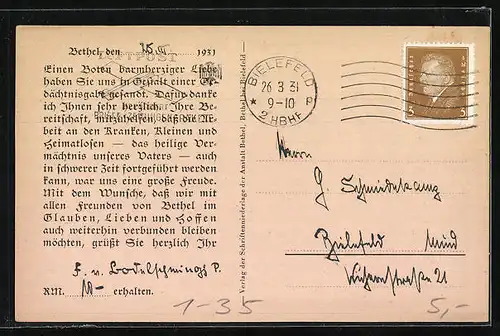 Bethel, den 25. III 1931
Einen Boten barmherziger Liebe
haben Sie uns in Gestalt einer Ge-
dächtnisgabe gesandt. Dafür danke
ich Ihnen sehr herzlich. Ihre Be-
reitschaft, mitzuhelfen, daß die Ar-
beit an den Kranken, Kleinen und
Heimatlosen — das heilige Ver-
mächtnis unseres Vaters — auch
in schwerer Zeit fortgeführt werden
kann, war uns eine große Freude.
Mit dem Wunsche, daß wir mit
allen Freunden von Bethel im
Glauben, Lieben und Hoffen
auch weiterhin verbunden bleiben
möchten, grüßt Sie herzlich Ihr
F. v. Bodelschwingh P.
RM. 10- erhalten.
Verlag der Schriftenniederlage der Anstalt Bethel, Bethel bei Bielefeld
LUFTPOST
BIELEFELD
26 3 31
9-10
* 2 HBHF
Deutsches Reich
5 5
Herrn
G. Schmiedekamp
Bielefeld
21
1-35
5,-